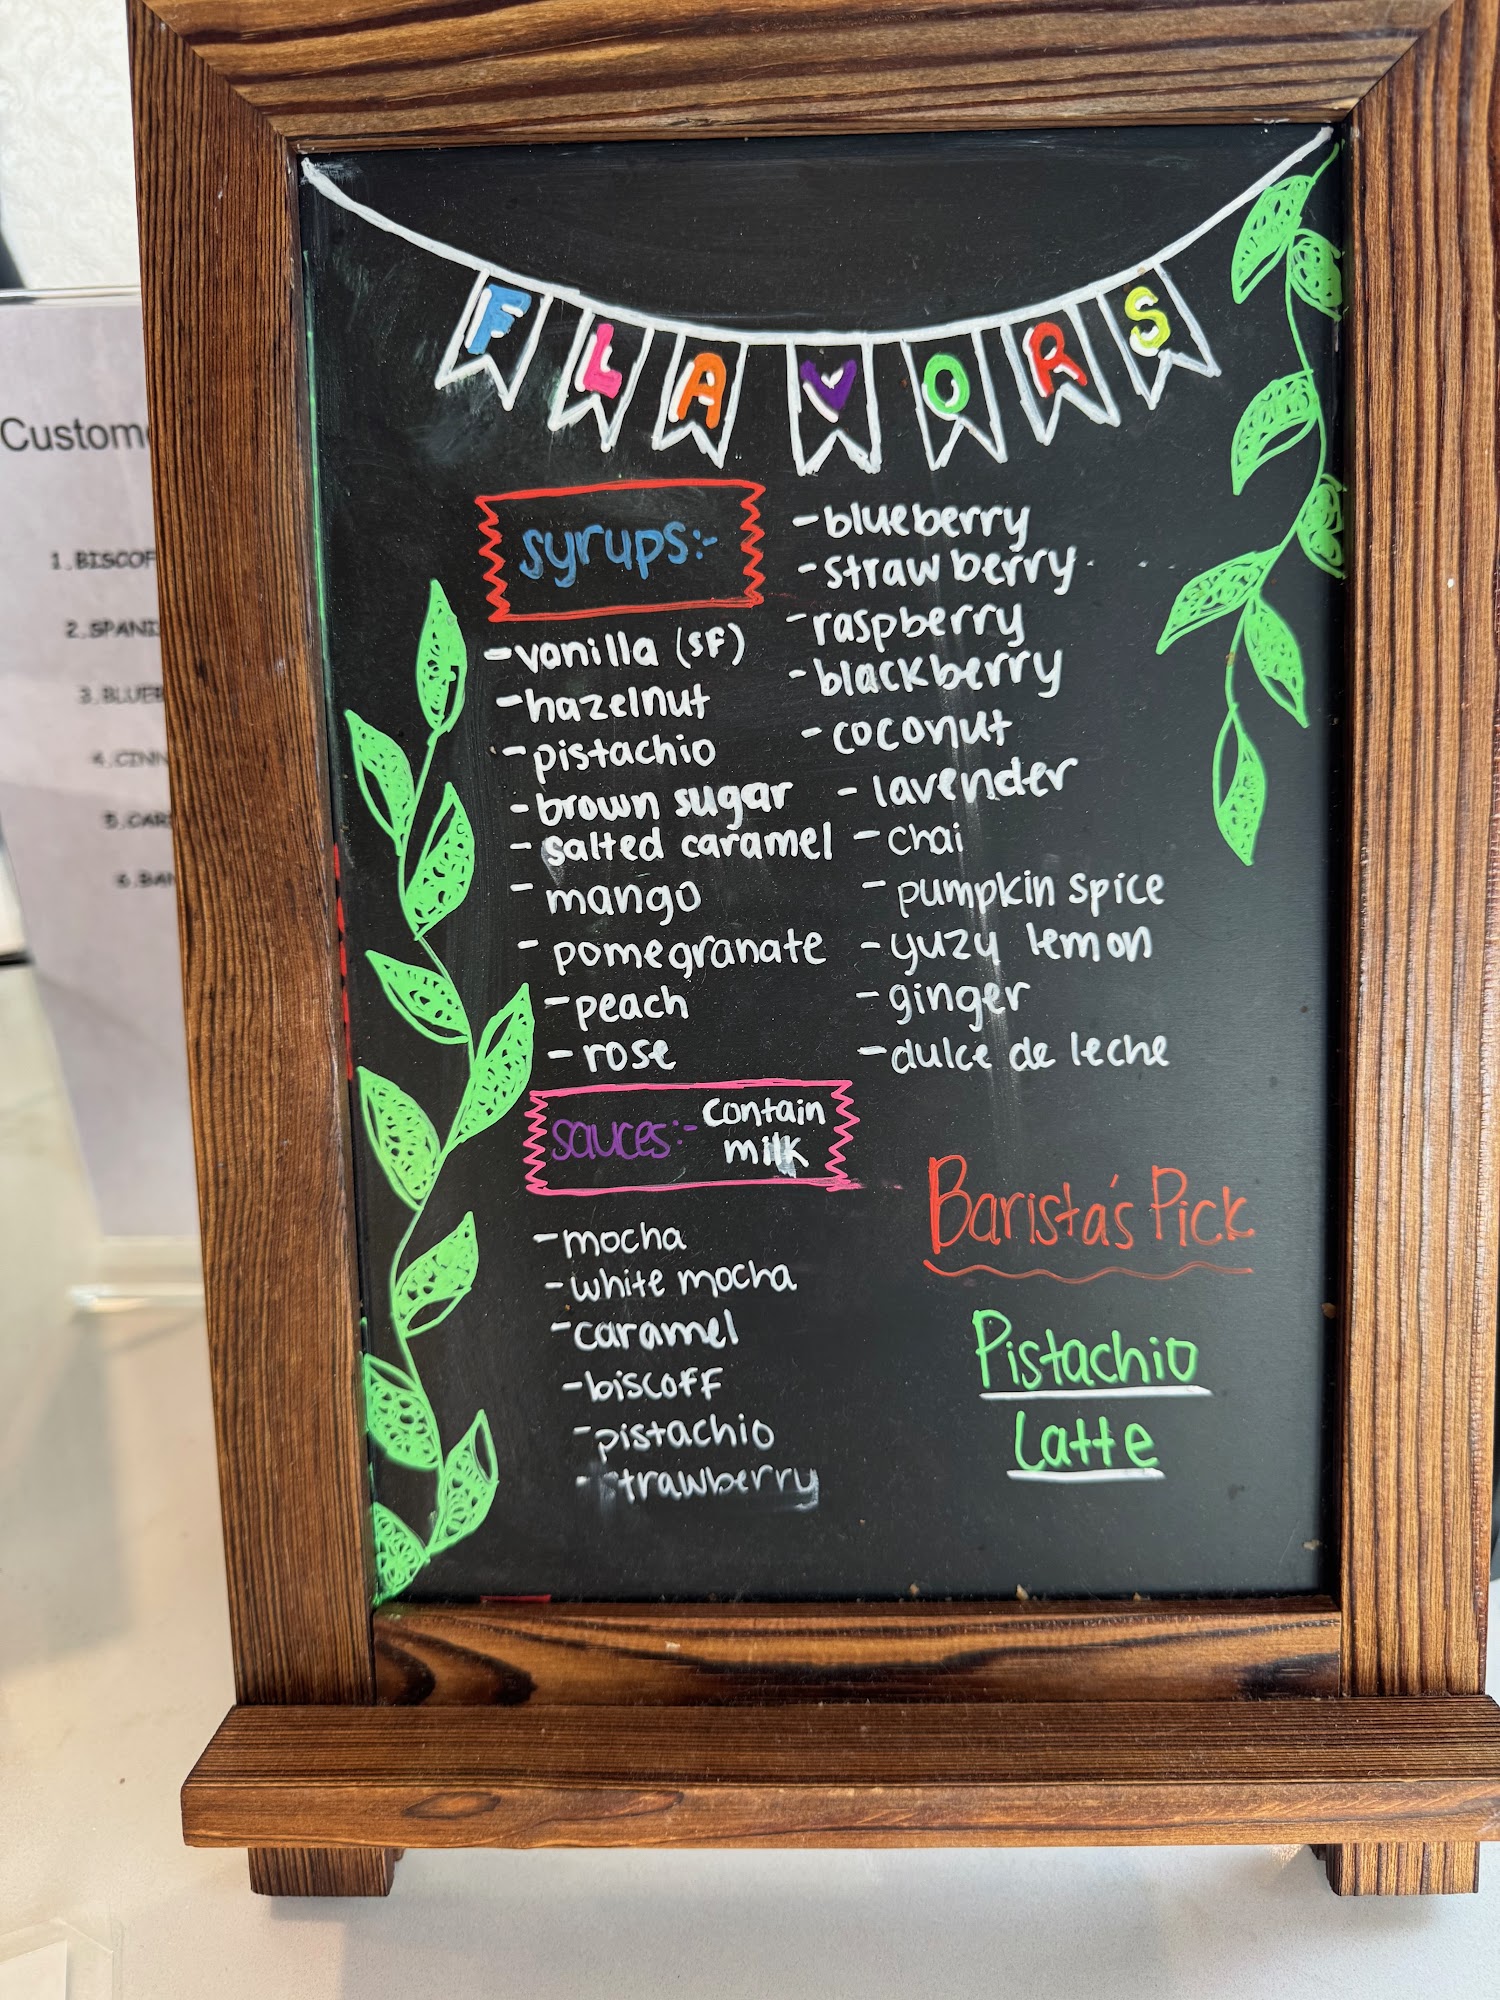 FLAVORS
syrups:-
- vanilla (SF)
- hazelnut
- pistachio
- brown sugar
- salted caramel
- mango
- pomegranate
- peach
- rose
- blueberry
- strawberry
- raspberry
- blackberry
- coconut
- lavender
- chai
- pumpkin spice
- yuzu lemon
- ginger
- dulce de leche
sauces:- contain
milk
- mocha
- white mocha
- caramel
- biscoff
- pistachio
- strawberry
Barista's Pick
Pistachio
Latte
Custome
1.BISCOF
2.SPANI
3.BLUEB
4.CINN
5.CAR
6.BAN